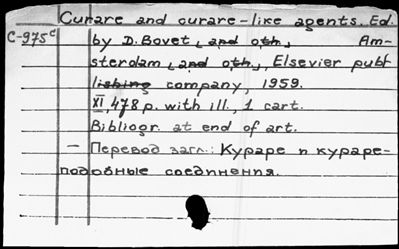 Curare and curare-like agents. Ed.
C-975c
by D. Bovet, and oth., Am-
sterdam, and oth., Elsevier publ
lishing company, 1959.
XI, 478 p. with ill., 1 cart.
Bibliogr. at end of art.
— Перевод загл.: Кураре и кураре-
подобные соединения.